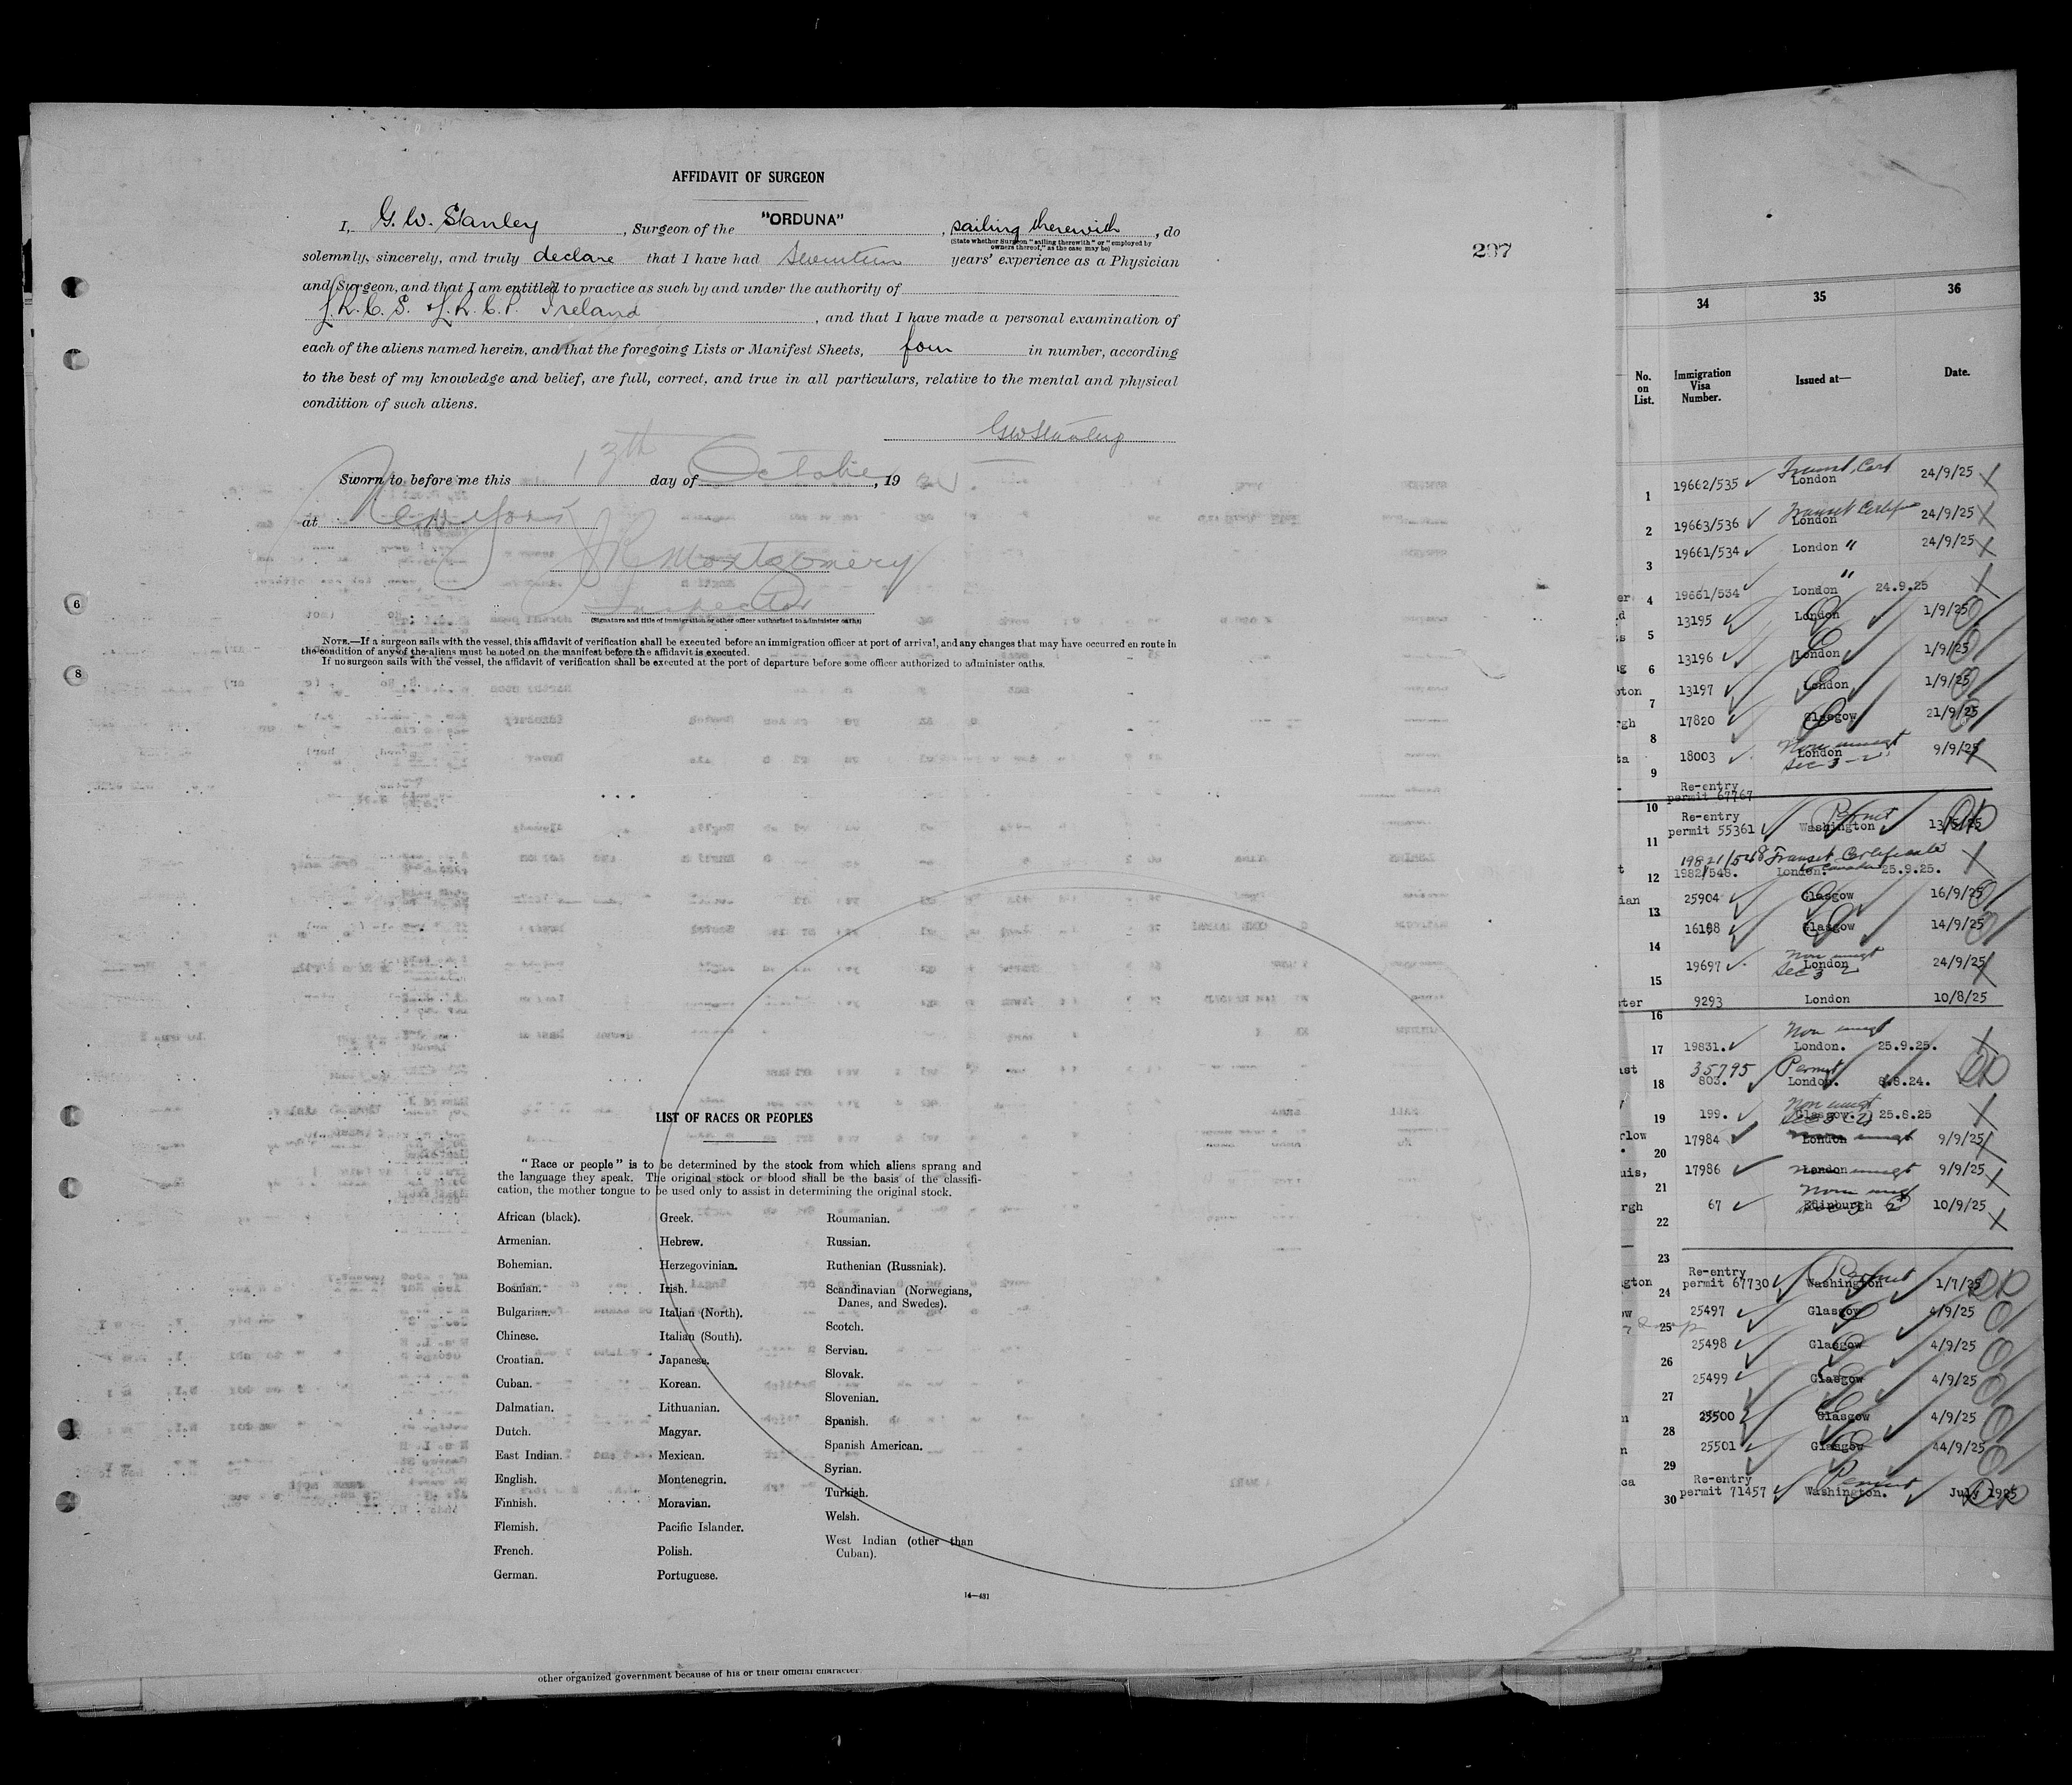 AFFIDAVIT OF SURGEON
I, G. W. Stanley, Surgeon of the "ORDUNA", sailing therewith, do
(State whether Surgeon "sailing therewith" or "employed by
owners thereof," as the case may be)
solemnly, sincerely, and truly declare that I have had seventeen years' experience as a Physician
and Surgeon, and that I am entitled to practice as such by and under the authority of
L.R.C.S. & L.R.C.P. Ireland, and that I have made a personal examination of
each of the aliens named herein, and that the foregoing Lists or Manifest Sheets, four in number, according
to the best of my knowledge and belief, are full, correct, and true in all particulars, relative to the mental and physical
condition of such aliens.
GW Stanley
Sworn to before me this 13th day of October, 19
at New York
JR Montgomery
Inspector
(Signature and title of immigration or other officer authorized to administer oaths)
NOTE.—If a surgeon sails with the vessel, this affidavit of verification shall be executed before an immigration officer at port of arrival, and any changes that may have occurred en route in
the condition of any of the aliens must be noted on the manifest before the affidavit is executed.
If no surgeon sails with the vessel, the affidavit of verification shall be executed at the port of departure before some officer authorized to administer oaths.
207
6
8
LIST OF RACES OR PEOPLES
"Race or people" is to be determined by the stock from which aliens sprang and
the language they speak. The original stock or blood shall be the basis of the classifi-
cation, the mother tongue to be used only to assist in determining the original stock.
African (black).
Armenian.
Bohemian.
Bosnian.
Bulgarian.
Chinese.
Croatian.
Cuban.
Dalmatian.
Dutch.
East Indian.
English.
Finnish.
Flemish.
French.
German.
Greek.
Hebrew.
Herzegovinian.
Irish.
Italian (North).
Italian (South).
Japanese.
Korean.
Lithuanian.
Magyar.
Mexican.
Montenegrin.
Moravian.
Pacific Islander.
Polish.
Portuguese.
Roumanian.
Russian.
Ruthenian (Russniak).
Scandinavian (Norwegians,
Danes, and Swedes).
Scotch.
Servian.
Slovak.
Slovenian.
Spanish.
Spanish American.
Syrian.
Turkish.
Welsh.
West Indian (other than
Cuban).
14—431
other organized government because of his or their official character
34 35 36
No. on List. Immigration Visa Number. Issued at— Date.
1 19662/535 Transit Cert London 24/9/25
2 19663/536 Transit Certif London 24/9/25
3 19661/534 London " 24/9/25
4 19661/534 London " 24.9.25
5 13195 London 1/9/25
6 13196 London 1/9/25
7 13197 London 1/9/25
8 17820 Glasgow 21/9/25
9 18003 Non immgt London Sec 3-2 9/9/25
10 Re-entry permit 67767
11 Re-entry permit 55361 Permit Washington 13/5/25
12 19821/548 Transit Certificate 1982/548. London. Canada 25.9.25.
13 25904 Glasgow 16/9/25
14 16188 Glasgow 14/9/25
15 19697 Non immgt London Sec 3 2 24/9/25
16 9293 London 10/8/25
17 19831. Non immgt London. 25.9.25.
18 35795 Permit 803. London. 8.8.24.
19 199. Non immgt Glasgow. Sec 3 (2) 25.8.25
20 17984 London immgt 9/9/25
21 17986 London immgt 9/9/25
22 67 Non immgt Edinburgh 10/9/25
23
24 Re-entry permit 67730 Permit Washington 1/7/25
25 25497 Glasgow 4/9/25
26 25498 Glasgow 4/9/25
27 25499 Glasgow 4/9/25
28 25500 Glasgow 4/9/25
29 25501 Glasgow 44/9/25
30 Re-entry permit 71457 Permit Washington. July 1925